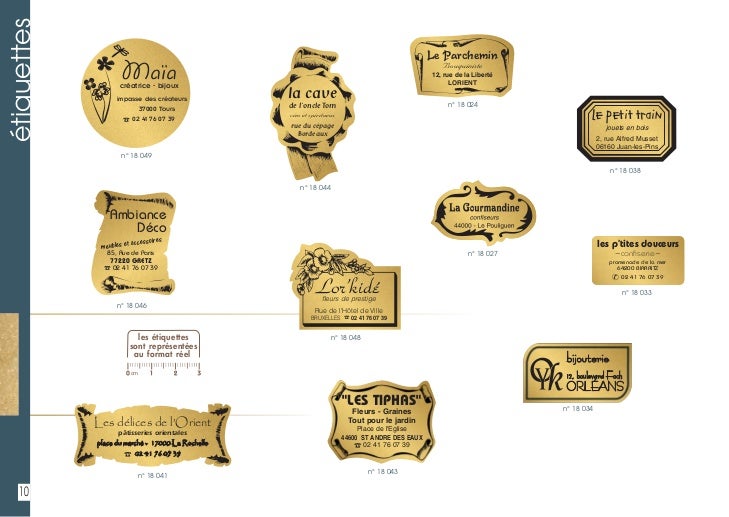 étiquettes
Maïa
créatrice - bijoux
impasse des créateurs
37000 Tours
☎ 02 41 76 07 39
n° 18 049
la cave
de l'oncle Tom
vins et spiritueux
rue du cépage
Bordeaux
n° 18 044
Le Parchemin
Bouquiniste
12, rue de la Liberté
LORIENT
n° 18 024
LE PETIT TRAIN
jouets en bois
2, rue Alfred Musset
06160 Juan-les-Pins
n° 18 038
Ambiance
Déco
meubles et accessoires
85, Rue de Paris
77220 GRETZ
☎ 02 41 76 07 39
n° 18 046
La Gourmandine
confiseurs
44000 - Le Pouliguen
n° 18 027
les p'tites douceurs
~ confiserie ~
promenade de la mer
64200 BIARRITZ
✆ 02 41 76 07 39
n° 18 033
Lor'kidé
fleurs de prestige
Rue de l'Hôtel de Ville
BRUXELLES ☎ 02 41 76 07 39
n° 18 048
les étiquettes
sont représentées
au format réel
0 cm 1 2 3
bijouterie
YK
12, boulevard Foch
ORLÉANS
n° 18 034
Les délices de l'Orient
pâtisseries orientales
place du marché - 17000 La Rochelle
☎ 02 41 76 07 39
n° 18 041
"LES TIPHAS"
Fleurs - Graines
Tout pour le jardin
Place de l'Eglise
44600 ST ANDRE DES EAUX
☎ 02 41 76 07 39
n° 18 043
10